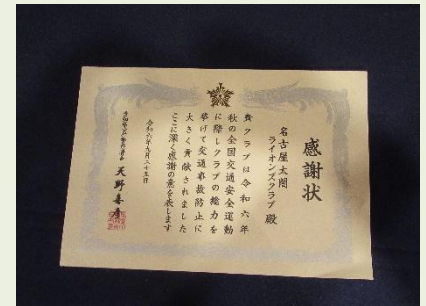 感謝状
名古屋太閤
ライオンズクラブ 殿
貴クラブは令和六年
秋の全国交通安全運動
に際しクラブの総力を
挙げて交通事故防止に
大きく貢献されました
ここに深く感謝の意を表します
令和六年九月二十五日
天野